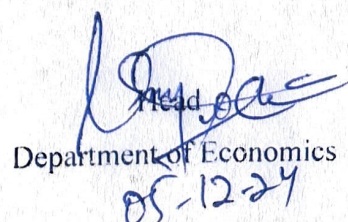 Head
Department of Economics
05-12-24